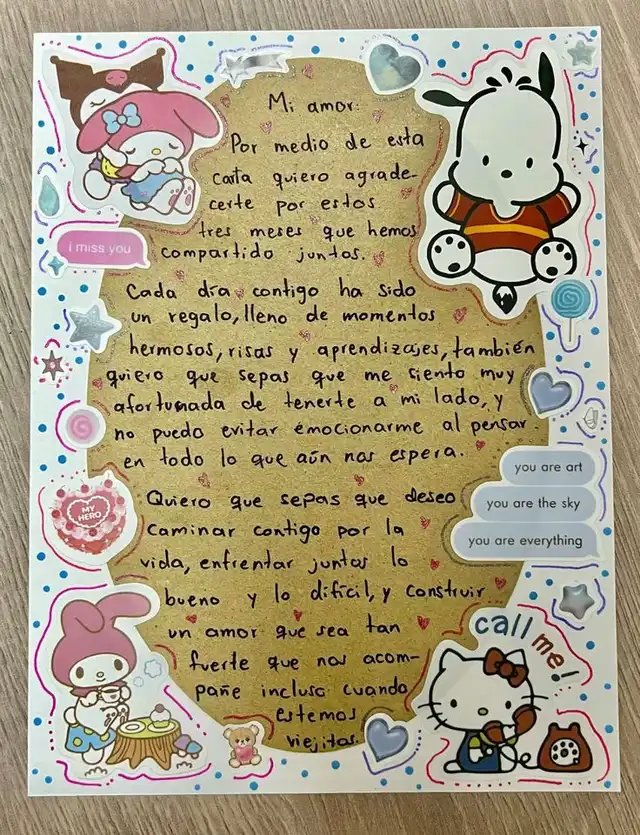 Mi amor:
Por medio de esta
carta quiero agrade-
certe por estos
tres meses que hemos
compartido juntos.
i miss you
Cada día contigo ha sido
un regalo, lleno de momentos
hermosos, risas y aprendizajes, también
quiero que sepas que me siento muy
afortunada de tenerte a mi lado, y
no puedo evitar emocionarme al pensar
en todo lo que aún nos espera.
you are art
you are the sky
you are everything
MY
HERO
Quiero que sepas que deseo
caminar contigo por la
vida, enfrentar juntos lo
bueno y lo difícil, y construir
un amor que sea tan
fuerte que nos acom-
pañe incluso cuando
estemos
viejitos.
call me!